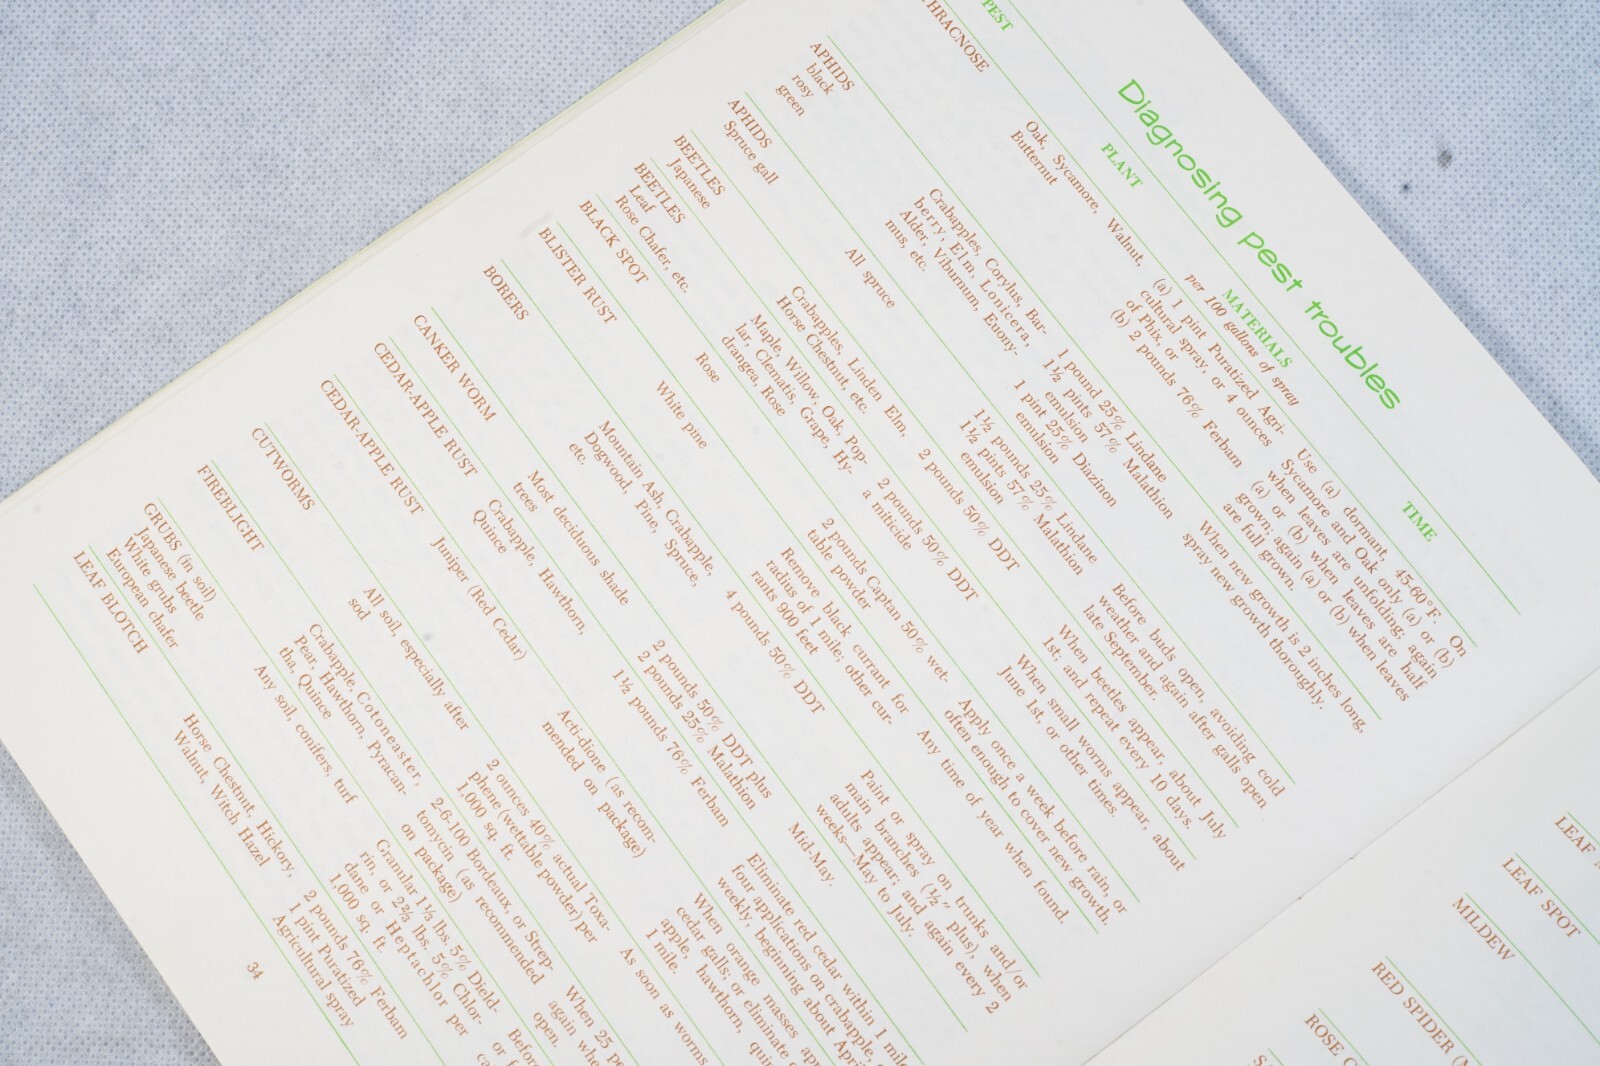 Diagnosing pest troubles
PEST
PLANT
MATERIALS
per 100 gallons of spray
TIME
THRACNOSE
Oak, Sycamore, Walnut,
Butternut
(a) 1 pint Puratized Agri-
cultural spray, or 4 ounces
of Phix, or
(b) 2 pounds 76% Ferbam
Use (a) dormant, 45-60°F. Or,
Sycamore and Oak only (a) or (b)
when leaves are unfolding; again
(a) or (b) when leaves are half
grown; again (a) or (b) when leaves
are full grown.
APHIDS
black
rosy
green
Crabapples, Corylus, Bar-
berry, Elm, Lonicera,
Alder, Viburnum, Euony-
mus, etc.
1 pound 25% Lindane
1½ pints 57% Malathion
emulsion
1 pint 25% Diazinon
emulsion
When new growth is 2 inches long,
spray new growth thoroughly.
APHIDS
Spruce gall
All spruce
1½ pounds 25% Lindane
1½ pints 57% Malathion
emulsion
Before buds open, avoiding cold
weather and again after galls open
late September.
BEETLES
Japanese
Crabapples, Linden Elm,
Horse Chestnut, etc.
2 pounds 50% DDT
When beetles appear, about July
1st; and repeat every 10 days.
BEETLES
Leaf
Rose Chafer, etc.
Maple, Willow, Oak, Pop-
lar, Clematis, Grape, Hy-
drangea, Rose
2 pounds 50% DDT
a miticide
When small worms appear, about
June 1st, or other times.
BLACK SPOT
Rose
2 pounds Captan 50% wet-
table powder
Apply once a week before rain, or
often enough to cover new growth.
BLISTER RUST
White pine
Remove black currant for
radius of 1 mile; other cur-
rants 900 feet
Any time of year when found.
BORERS
Mountain Ash, Crabapple,
Dogwood, Pine, Spruce,
etc.
4 pounds 50% DDT
Paint or spray on trunks and/or
main branches (½" plus), when
adults appear; and again every 2
weeks—May to July.
CANKER WORM
Most deciduous shade
trees
2 pounds 50% DDT plus
2 pounds 25% Malathion
Mid-May.
CEDAR-APPLE RUST
Crabapple, Hawthorn,
Quince
1½ pounds 76% Ferbam
Eliminate red cedar within 1 mile
four applications on crabapple,
weekly, beginning about April
CEDAR-APPLE RUST
Juniper (Red Cedar)
Acti-dione (as recom-
mended on package)
When orange masses
cedar galls; or eliminate
apple, hawthorn,
1 mile.
CUTWORMS
All soil, especially after
sod
2 ounces 40% actual Toxa-
phene (wettable powder) per
1,000 sq. ft.
As soon as worms
FIREBLIGHT
Crabapple, Cotoneaster,
Pear, Hawthorn, Pyracan-
tha, Quince
2-6-100 Bordeaux, or Strep-
tomycin (as recommended
on package)
When 25
again
open.
GRUBS (in soil)
Japanese beetle
White grubs
European chafer
Any soil, conifers, turf
Granular 1⅓ lbs. 5% Dield-
rin, or 2⅔ lbs. 5% Chlor-
dane or Heptachlor per
1,000 sq. ft.
LEAF BLOTCH
Horse Chestnut, Hickory,
Walnut, Witch Hazel
2 pounds 76% Ferbam
1 pint Puratized
Agricultural spray
34
LEAF
LEAF SPOT
MILDEW
RED SPIDER
ROSE